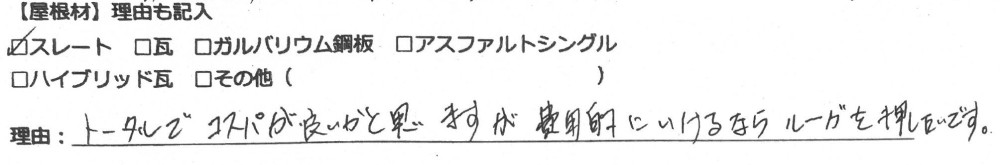 【屋根材】理由も記入
☑スレート □瓦 □ガルバリウム鋼板 □アスファルトシングル
□ハイブリッド瓦 □その他（ ）
理由：トータルで コスパが良いかと思いますが 費用的にいけるなら ルーガを押したいです。